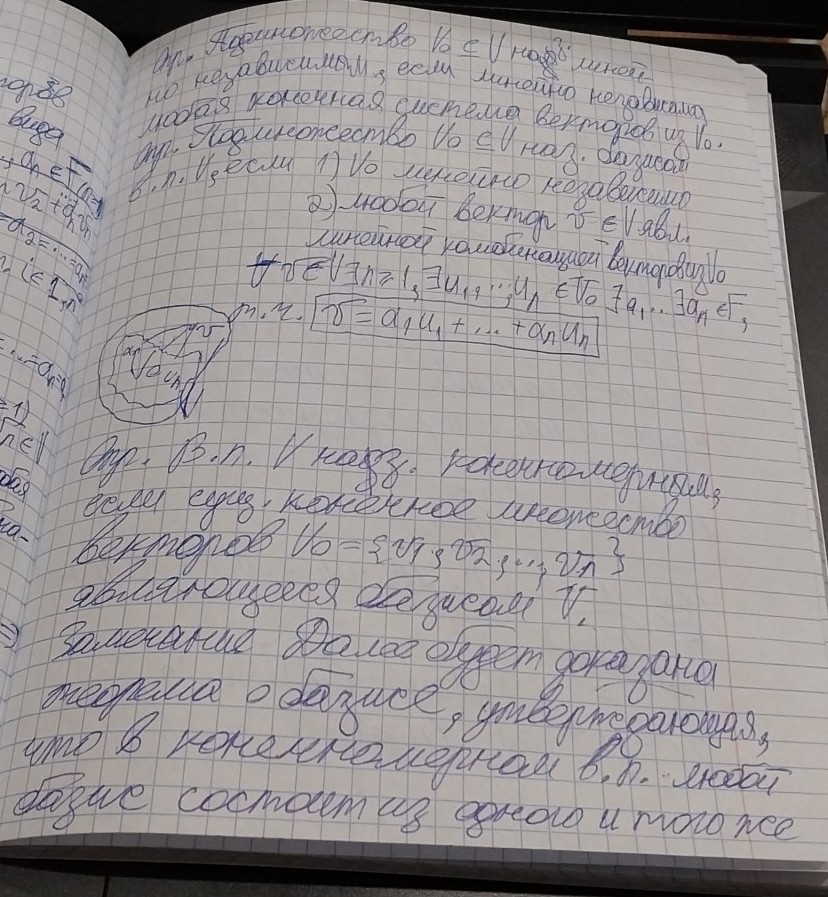 Опр. Подмножество V₀ ⊆ V наз. линей
но независимым, если линейно независима
любая конечная система векторов из V₀.
Опр. Подмножество V₀ ⊆ V наз. базисом
в.п. V, если 1) V₀ линейно независимо
2) любой вектор v ∈ V явл.
линейной комбинацией векторов из V₀
∀ v ∈ V ∃ n ≥ 1, ∃ u₁, ..., uₙ ∈ V₀ ∃ a₁ ... ∃ aₙ ∈ F,
т.ч. v = a₁u₁ + ... + aₙuₙ
Опр. В.п. V назз. конечномерным,
если сущ. конечное множество
векторов V₀ = {v₁, v₂, ..., vₙ}
являющееся базисом V.
Замечание Далее будет доказана
теорема о базисе, утверждающая,
что в конечномерном в.п. любой
базис состоит из одного и того же
торов
вида
, aₙ ∈ F (n≥1)
v₂ + aₙvₙ
= a₂ = ... = aₙ
i ∈ 1,n